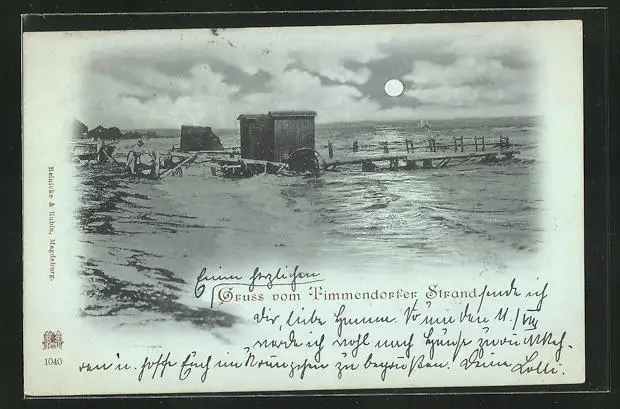 Einen herzlichen
Gruss vom Timmendorfer Strand sende ich
Dir, liebe Emma. Vor den 11/VIII
werde ich wohl nach Hause zurückkeh-
ren u. hoffe Euch im Kränzchen zu begrüßen. Deine Lolli.
Reinicke & Rubin, Magdeburg.
1040